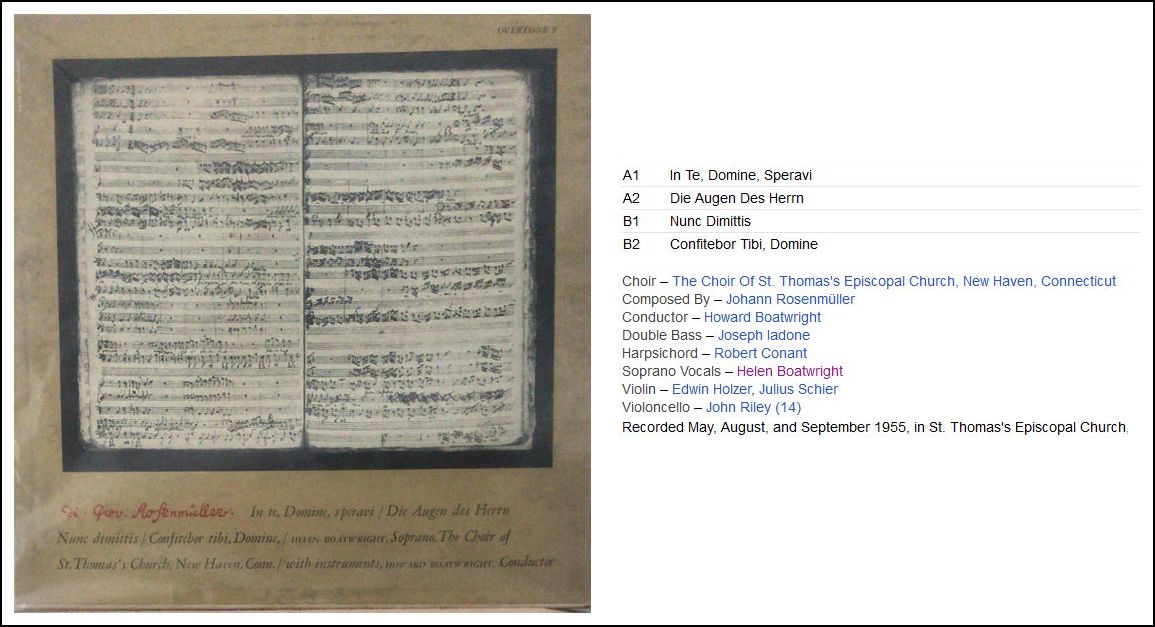 OVERTONE 9
Di Giov: Rosenmüller. In te, Domine, speravi / Die Augen des Herrn
Nunc dimittis / Confitebor tibi, Domine, / HELEN BOATWRIGHT, Soprano, The Choir of
St. Thomas's Church, New Haven, Conn. / with instruments, HOWARD BOATWRIGHT, Conductor
A1 In Te, Domine, Speravi
A2 Die Augen Des Herrn
B1 Nunc Dimittis
B2 Confitebor Tibi, Domine
Choir – The Choir Of St. Thomas's Episcopal Church, New Haven, Connecticut
Composed By – Johann Rosenmüller
Conductor – Howard Boatwright
Double Bass – Joseph Iadone
Harpsichord – Robert Conant
Soprano Vocals – Helen Boatwright
Violin – Edwin Holzer, Julius Schier
Violoncello – John Riley (14)
Recorded May, August, and September 1955, in St. Thomas's Episcopal Church,